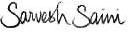 Sarvesh Saini